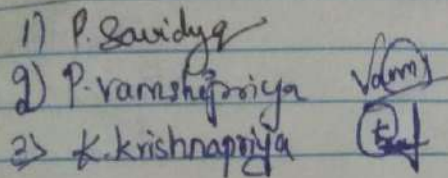 1) P. Savidya
2) P. vamshipriya
3) K. krishnapriya